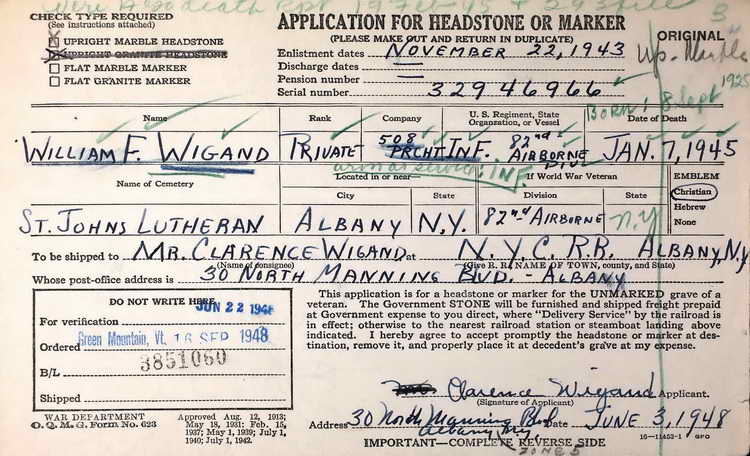 CHECK TYPE REQUIRED
(See instructions attached)
UPRIGHT MARBLE HEADSTONE
UPRIGHT GRANITE HEADSTONE
FLAT MARBLE MARKER
FLAT GRANITE MARKER
APPLICATION FOR HEADSTONE OR MARKER
(PLEASE MAKE OUT AND RETURN IN DUPLICATE)
ORIGINAL
Up. Marble
Enlistment dates NOVEMBER 22, 1943
Discharge dates
Pension number
Serial number 32946966
BORN: 8 Sept 1925
Name Rank Company U. S. Regiment, State Organzation, or Vessel Date of Death
WILLIAM F. WIGAND PRIVATE 508 PRCHT INF. 82nd AIRBORNE DIV. JAN. 7, 1945
INF.
Name of Cemetery Located in or near— If World War Veteran EMBLEM
City State Division State
Christian
Hebrew
None
ST. JOHNS LUTHERAN ALBANY N.Y. 82nd AIRBORNE N.Y
To be shipped to MR. CLARENCE WIGAND at N.Y.C. R.R. ALBANY, N.Y.
(Name of consignee) (Give R. R. NAME OF TOWN, county, and State)
Whose post-office address is 30 NORTH MANNING BLVD. - ALBANY
DO NOT WRITE HERE
JUN 22 1948
For verification
Green Mountain, Vt. 16 SEP 1948
Ordered
3851060
B/L
Shipped
This application is for a headstone or marker for the UNMARKED grave of a
veteran. The Government STONE will be furnished and shipped freight prepaid
at Government expense to you direct, where "Delivery Service" by the railroad is
in effect; otherwise to the nearest railroad station or steamboat landing above
indicated. I hereby agree to accept promptly the headstone or marker at des-
tination, remove it, and properly place it at decedent's grave at my expense.
Clarence Wigand Applicant.
(Signature of Applicant)
Address 30 North Manning Blvd Date JUNE 3, 1948
Albany, N.Y.
ZONE 5
WAR DEPARTMENT
O. Q. M. G. Form No. 623
Approved Aug. 12, 1913;
May 18, 1931; Feb. 15,
1937; May 1, 1939; July 1,
1940; July 1, 1942.
IMPORTANT—COMPLETE REVERSE SIDE
16—11452-1 GPO